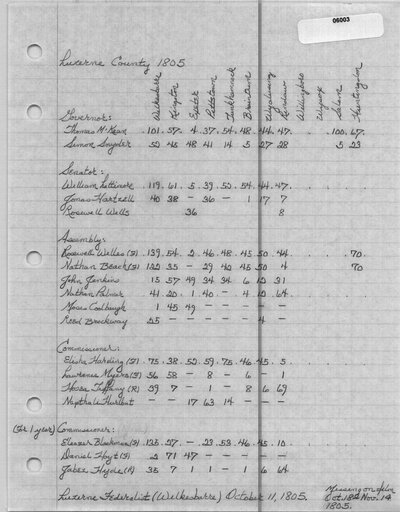 06003
Luzerne County 1805
Wilkesbarre Kingston Exeter Pittstown Tunkhannock Braintrim Wyalusing Rindaw Willingboro Wysox Salem Huntington
Governor:
Thomas McKean . 101 . 57 . 4 . 37 . 54 . 48 . 44 . 47 . . . 100 . 67 .
Simon Snyder 52 45 48 41 14 5 27 28 . . 5 23
Senator:
William Lattimore . 119 . 61 . 5 . 39 . 52 . 54 . 44 . 47 . . . . .
Jonas Hartzell 40 38 – 36 – 1 17 7
Roswell Wells 36 8
Assembly:
Rosewell Welles (F) . 139 . 54 . 2 . 46 . 48 . 45 . 50 . 44 . . . . 70 .
Nathan Beach (F) 122 35 – 29 40 45 50 4 70
John Jenkins 15 57 49 34 34 6 12 31
Nathan Palmer 41 20 . 1 40 . – . 4 12 64 . . . . .
Moses Coolbaugh 1 45 49 – – – – –
Reed Brockway 25 – – – – – 4 –
Commissioner:
Elisha Harding (F) . 75 . 38 . 52 . 59 . 75 . 46 . 45 . 5 . . . . .
Lawrence Myers (F) 56 58 – 8 – 6 – 1
Hosea Tiffany (R) 39 7 – 1 – 8 6 69
Napthali Hurlbut – – 17 63 14 – – –
(for 1 year) Commissioner:
Eleazer Blackman (F) 125 . 27 . – . 23 . 53 . 46 . 45 . 10 . . . . .
Daniel Hoyt (F) 2 71 47 – – – – –
Jabez Hyde (R) 35 7 1 1 – 1 6 64
Luzerne Federalist (Wilkesbarre) October 11, 1805.
Missing on film
Oct. 18th Nov. 14
1805.